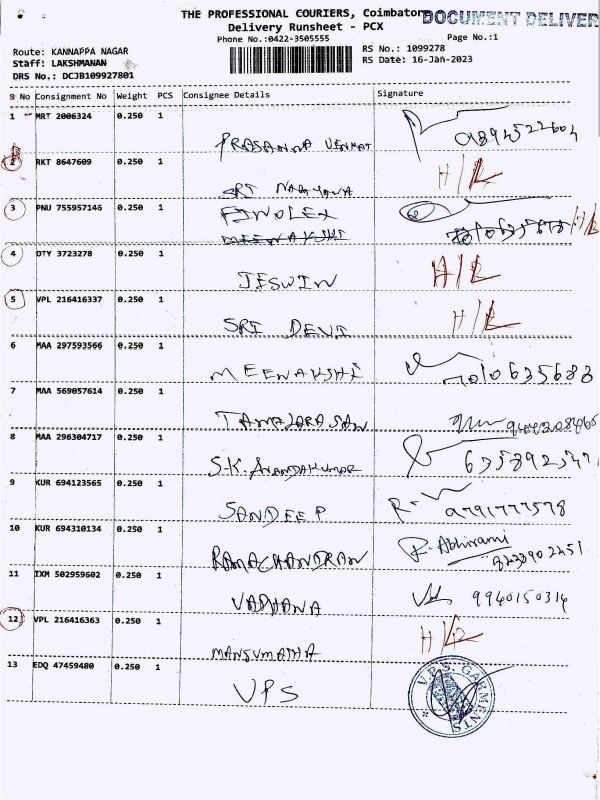 THE PROFESSIONAL COURIERS, Coimbatore
DOCUMENT DELIVER
Delivery Runsheet - PCX
Phone No.:0422-3505555
Page No.:1
Route: KANNAPPA NAGAR
RS No.: 1099278
Staff: LAKSHMANAN
RS Date: 16-Jan-2023
DRS No.: DCJB109927801
S No Consignment No Weight PCS Consignee Details Signature
1 MRT 2006324 0.250 1
PRASANNA VENKAT
2 RKT 8647609 0.250 1 H/R
SRI NARAYANA
3 PNU 755957146 0.250 1 FINOLEX
MEENAKSHI H/R
4 DTY 3723278 0.250 1 H/R
JESWIN
5 VPL 216416337 0.250 1 H/R
SRI DEVI
6 MAA 297593566 0.250 1
MEENAKSHI
7 MAA 569057614 0.250 1
TAMILARASAN
8 MAA 296304717 0.250 1
S.K. ANANDAKUMAR
9 KUR 694123565 0.250 1
SANDEEP 9791777578
10 KUR 694310134 0.250 1 R. Abhirami
RAMACHANDRAN
11 IXM 502959602 0.250 1
VADHANA 9940150314
12 VPL 216416363 0.250 1 H/R
13 EDQ 47459480 0.250 1
VPS
V.P.S. GARMENTS